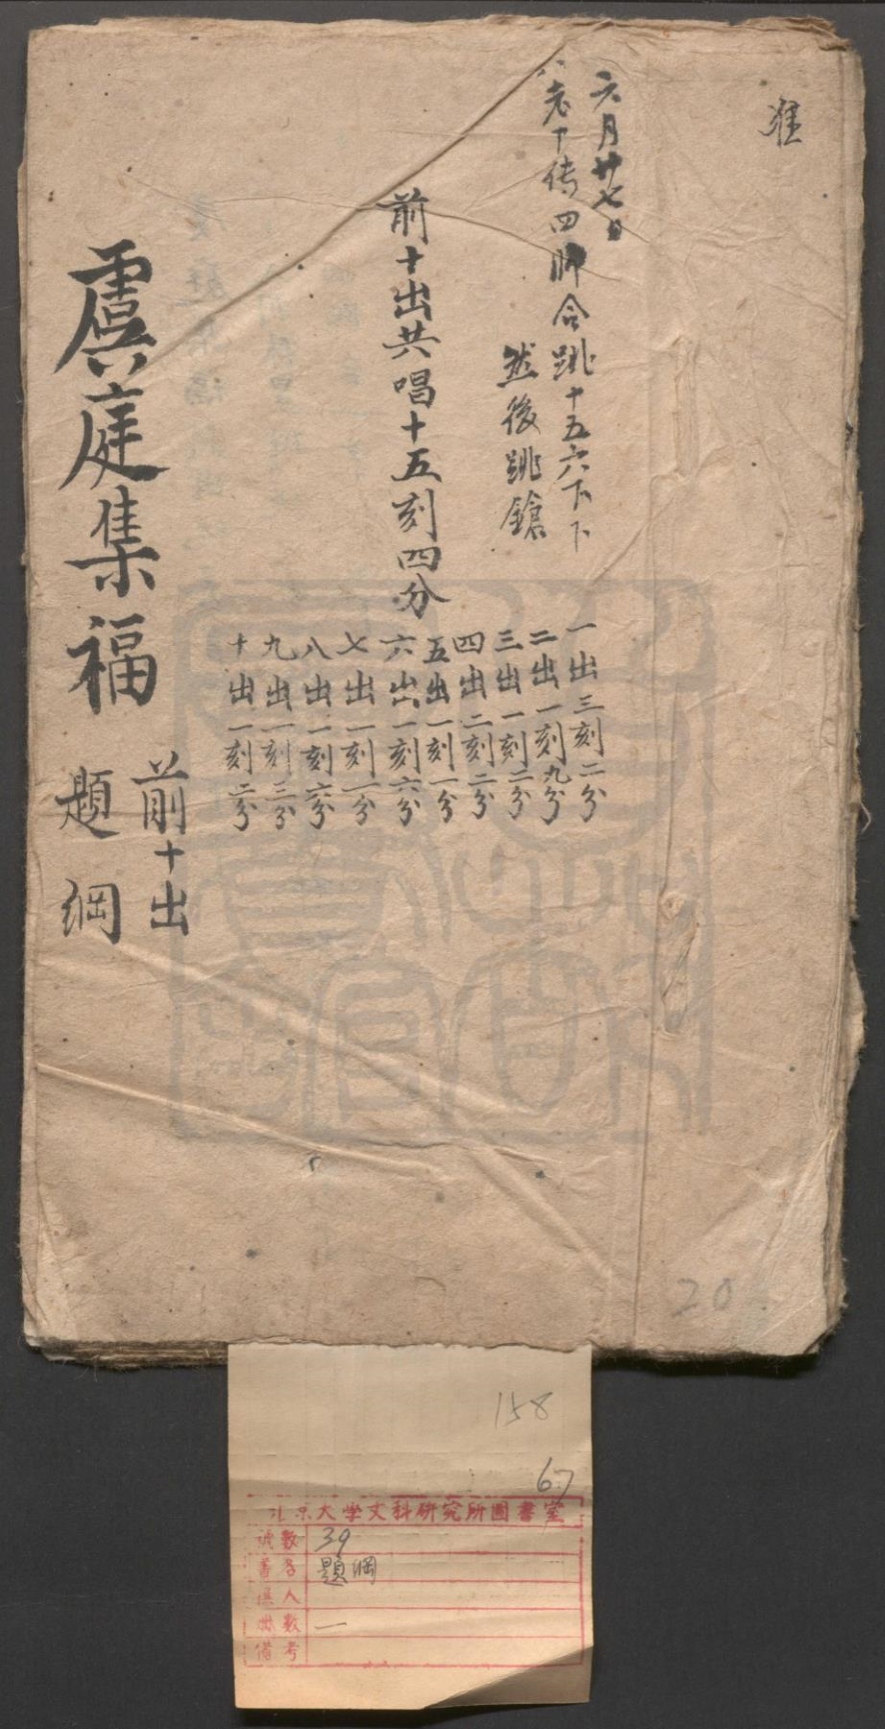 准
六月廿七日
老下传四牌合跳十五六下下
然後跳鎗
前十出共唱十五刻四分
一出三刻二分
二出一刻九分
三出一刻三分
四出二刻二分
五出一刻一分
六出一刻六分
七出一刻一分
八出一刻六分
九出一刻三分
十出一刻二分
虞庭集福
前十出
題綱
20
158
67
北京大學文科研究所圖書室
號數 39
書名 題綱
撰人
冊數 一
備考